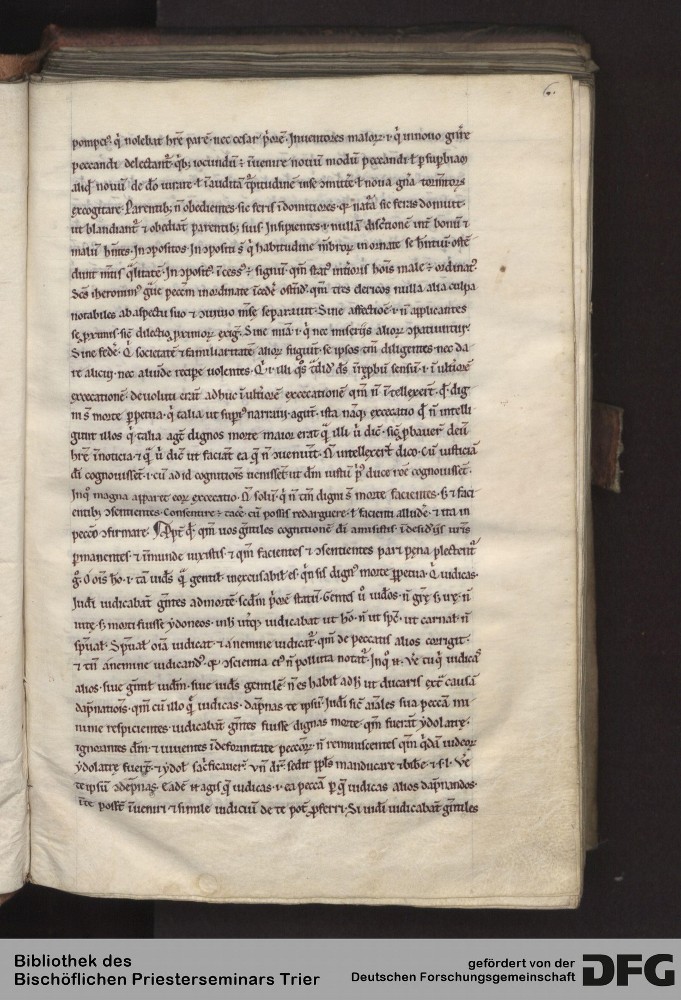 6.
pompeꝰ. q̇ nolebat hr̄e parē. nec cesar p̄orē. Inuentores malorꝝ .i. q̇ innouo gn̄e
peccandi delectant᷑. qͥbꝫ iocundū ÷ īuenire nouū modū peccandi
aliqͥd nouū de
excogitare. Parentibꝫ n̄ obedientes. sic feris īdomitiores. qꝛ natᷓ sic feras domuit.
ut blandiant᷑ ⁊ obediāt parentibꝫ suis. Insipientes .i. nullā discͤtionē int̄ bonū ⁊
malū hn̄tes. Inↄpositos. Inↄpositi s̄ q̇ habitudine mēbroꝝ in ornate se hn̄t
dunt m̄tis qͣlitatē. Inↄpositꝰ īcessꝰ ÷ signū. qm̄ statꝰ īterioris hoīs male ÷ ordinatꝰ.
Sc̄s iheronimꝰ inordinate īcedē ostēdit. qm̄ tres clericos nulla alia culpa
notabiles ab aspectu suo ⁊ se separauit. Sine affectiōe .i. n̄ applicantes
se ꝓximis. sic̄ dilectio ꝓximoꝝ exigit. Sine mīa .i. q̇ nec miserijs alioꝝ ↄpatiuntur.
Sine fedē. Q̇ societatē ⁊ familiaritatē alioꝝ fugiūt. se ipsos tm̄ diligentes. nec da
re alicui. nec aliunde recipe uolentes. Q̇ .i. illi qͦs t̄didit ds̄ ī rep̄bū sensum .i. ī ulteriorē
excecationē. deuoluti erāt adhuc ī ulteriorē excecationē qm̄ n̄ ītellexert̄. qd̄ dig
ni s̄ morte ꝑpetua. q̇ talia ut supiꝰ narraui agūt. ista nāqꝫ excecatio qd̄ n̄ intelli
gunt illos q̇ talia agūt dignos morte maior erat
hr̄e ī noticia ⁊ ut faciāt ea q̄ n̄ ↄueniūt. N̄ intellexert̄ dico. Cū iusticiā
dī cognouissēt .i. cū ad id cognitiōis uenissēt ut dm̄ iustū cognouissēt.
Inqͦ magna apparet eoꝝ excecatio. N̄ solū q̇ n̄ tm̄ digni s̄ morte facientes. sꝫ ⁊ faci
entibꝫ ↄsentientes. Consentire ÷ tacē. cū possis redarguere. ł facienti alludē. ⁊ ita in
pecc̄o ↄfirmare. qm̄ uos gentiles cognitionē dī amisistis. ī desid'ijs uris
ꝑmanentes. ⁊ īmunde uixistis ⁊ qm̄ facientes ⁊ ↄsentientes pari pena plectent᷑
gͦ. O oīs hō .i. tā iudꝰs qͣ gentil'. inexcusabil' es. digꝰ morte ꝑpetua. Q̇ iudicas.
Iudī iudicabant gentes ad mortē. scdm̄ p̄orē statū. Gentes ū iudꝰos. n̄ grē sꝫ ire. n̄
uite sꝫ morti fuisse ydoneos. iudicabat ut hō. n̄ ut spc̄. ut carnal'. n̄
spūal'. Spūal' oīa iudicat. ⁊ a nemine iudicat᷑. qm̄ de peccatis alios corrigit.
⁊ tn̄ a nemine iudicandꝰ. qꝛ ↄscientia ciꝰ n̄ polluta notat᷑. Inqͦ n̄. Ue tu q̇ iudicas
alios. siue gentil' iudm̄. siue iudꝰs gentilē. n̄ es habil' ut ducaris extͣ causā
dāpnatiōis. qm̄ cū illo qͤ iudicas. dāpnas te ipsū. Iudī sic̄ aīales sua peccā mi
nime respicientes. iudicabāt gentes fuisse dignas morte. qm̄ fuerāt ydolatre.
ignorantes dm̄. ⁊ uiuentes ī deformitate peccoꝝ. n̄ reminiscentes qm̄ qͥdā iudeoꝝ
ydolatre fuer̄t. ⁊ ydol' sacͥficauer̄t. un̄ dr̄. sedit ppls̄ manducare ⁊ bibe. ⁊ s. l. Ue
te ipsū ↄdēpnas. Eadē n̄ agis q̄ iudicas .i. ea peccā ꝑ q̄ iudicas alios dāpnandos.
ī te possēt īueniri ⁊ simile iudiciū de te pot̄ ꝓferri. Si iudī iudicabāt gentiles
Bibliothek des
Bischöflichen Priesterseminars Trier
gefördert von der
Deutschen Forschungsgemeinschaft DFG